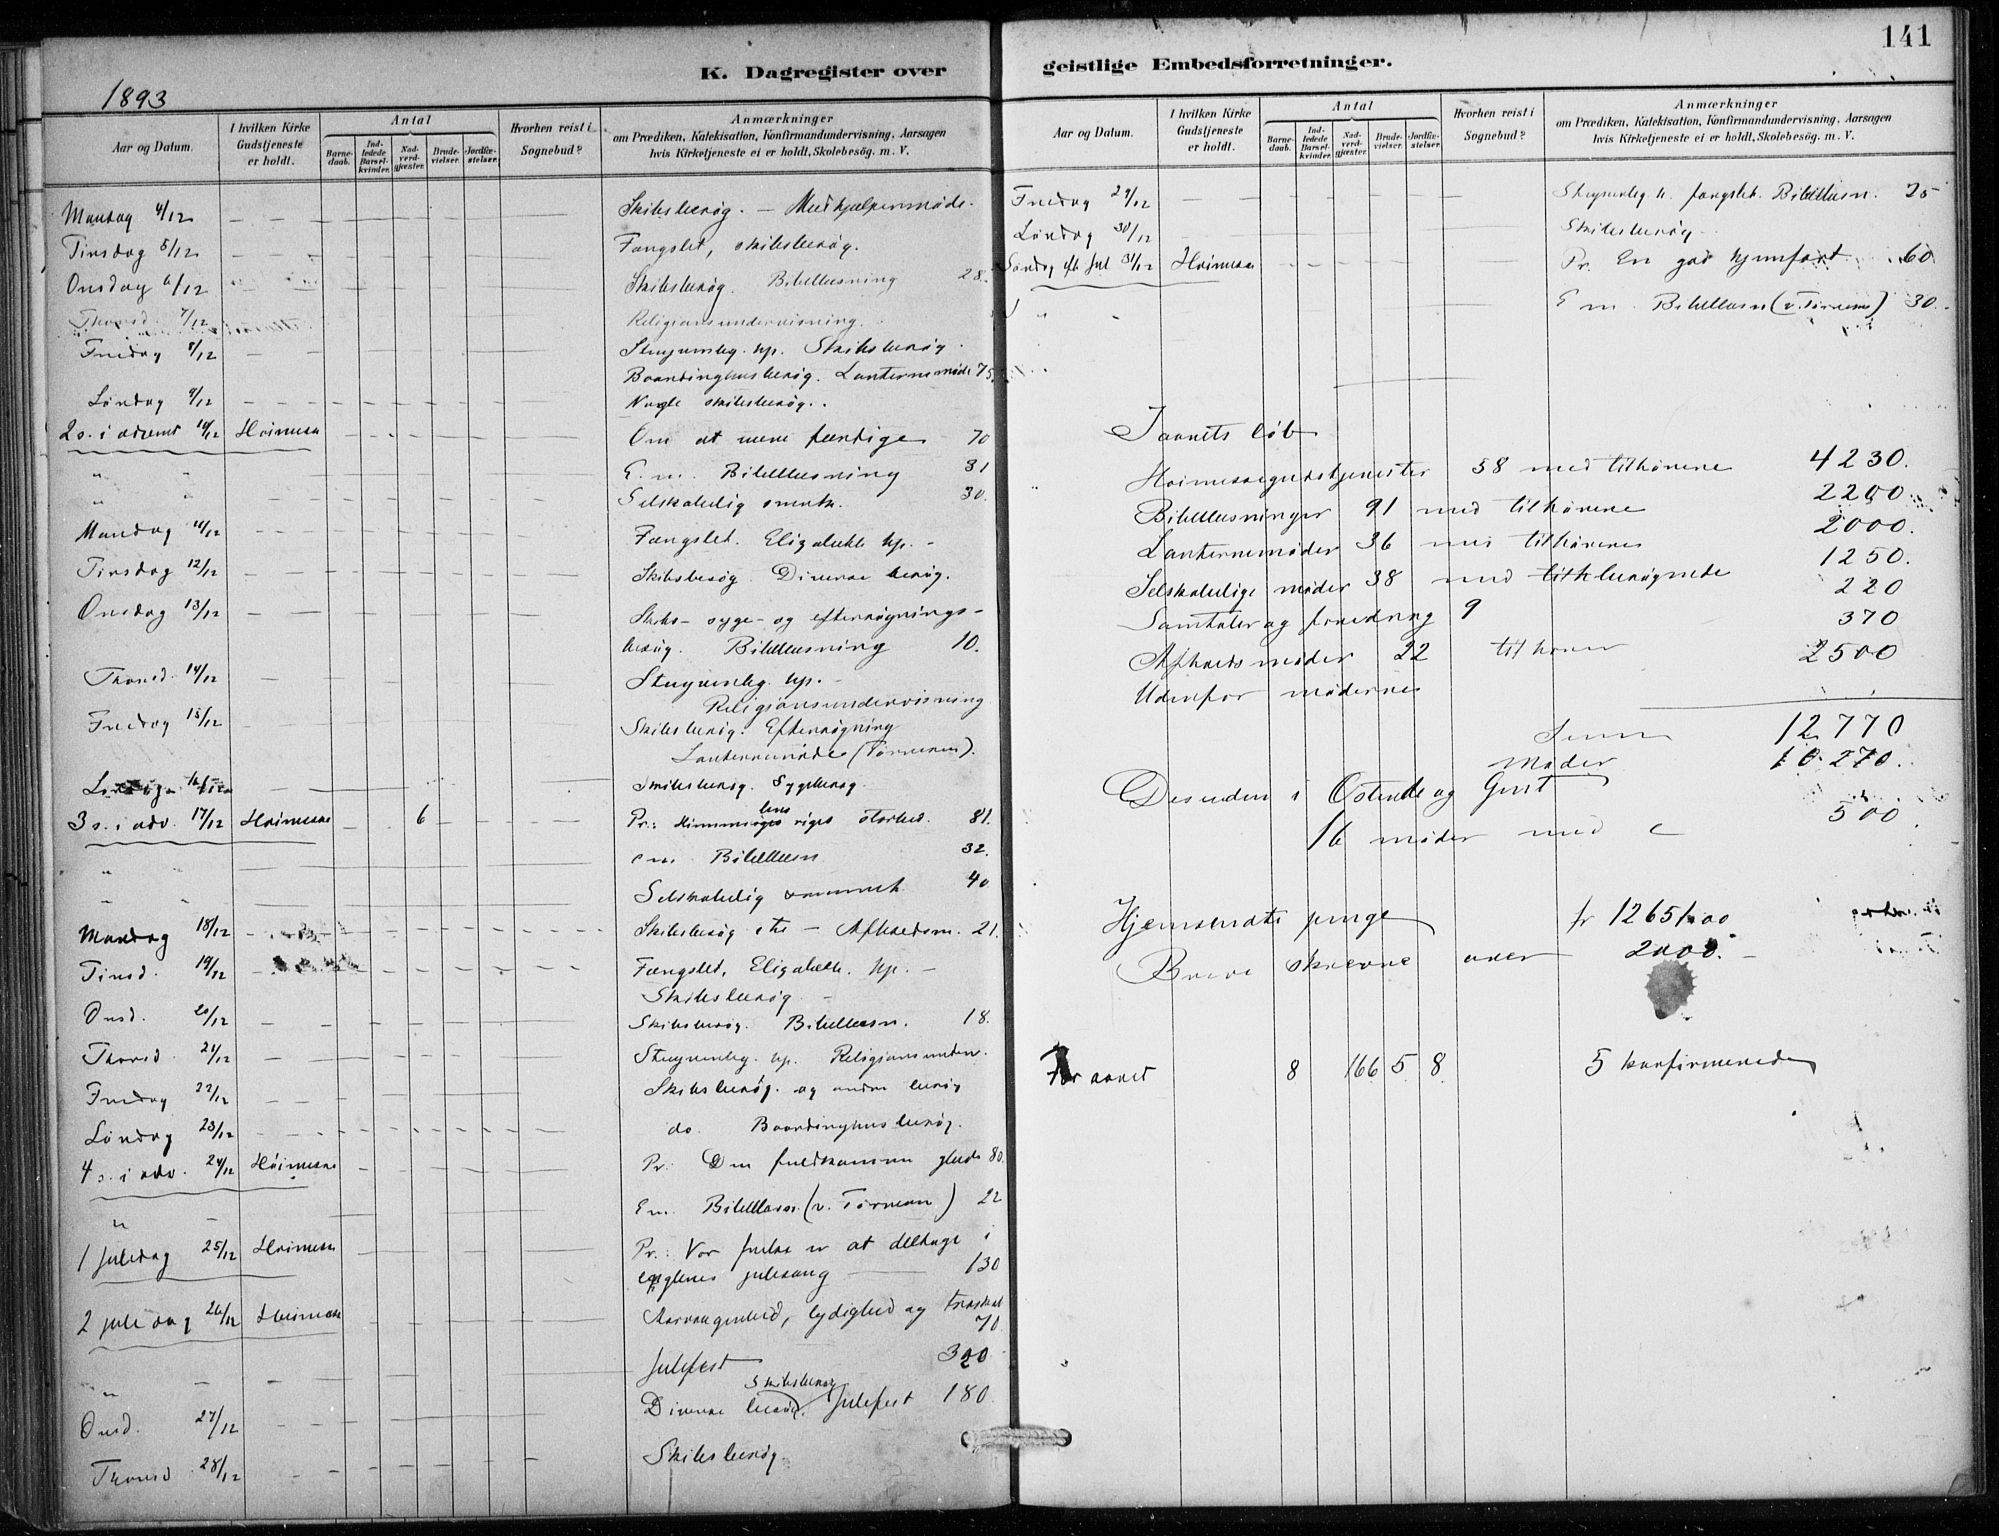 141
K. Dagregister over
geistlige Embedsforretninger.
1893
Aar og Datum.
I hvilken Kirke Gudstjeneste er holdt.
Antal
Barne-daab.
Ind-ledede Barsel-kvinder.
Nad-verd-gjæster.
Brude-vielser.
Jordfæ-stelser.
Hvorhen reist i Sognebud?
Anmærkninger
om Prædiken, Katekisation, Konfirmandundervisning, Aarsagen
hvis Kirketjeneste ei er holdt, Skolebesög. m. V.
Mandag 4/12 Skibsbesøg. — Medhjælpermøde.
Tirsdag 5/12 Fængslet, skibsbesøg.
Onsdag 6/12 Skibsbesøg. Bibellæsning 28.
Thorsd. 7/12 Religionsundervisning.
Fredag 8/12 Stuyvenbg. hp. Skibsbesøg.
Boardinghusbesøg. Lanternemøde 75.
Lørdag 9/12 Nogle skibsbesøg.
2 s. i advent 10/12 Høimesse Om at være færdige 70
" " E. m. Bibellæsning 31
" " Selskabelig 30.
Mandag 11/12 Fængslet. Elizabeth hp. -
Tirsdag 12/12 Skibsbesøg. Diverse besøg.
Onsdag 13/12 Skibs- syge- og eftersøgnings-
besøg. Bibellæsning 10.
Thorsd. 14/12 Stuyvenbg. hp. -
Religionsundervisning
Fredag 15/12 Skibsbesøg. Eftersøgning
Lanternemøde (Tørnesen).
Lørdag 16/12 Skibsbesøg. Sygebesøg.
3 s. i adv. 17/12 Høimesse 6 Pr.: Himmeriges riges storhed. 81.
" e m. Bibellæsn 32.
" " Selskabelig 40
Mandag 18/12 Skibsbesøg etc - Afholdsm. 21.
Tirsd. 19/12 Fængslet, Elizabeth. hp. -
Skibsbesøg. -
Onsd. 20/12 Skibsbesøg. Bibellæsn. 18.
Thorsd. 21/12 Stuyvenbg. hp. Religionsunderv.
Fredag 22/12 Skibsbesøg. og andre besøg
Lørdag 23/12 do. Boardinghusbesøg.
4 s. i adv. 24/12 Høimesse Pr: Den fuldkomne glæde 80.
" Em. Bibellæsn. (v. Tørnesen) 22
1 juledag 25/12 Høimesse Pr.: Vor frelse er at deltage i
englenes julesang 130
2 juledag 26/12 Høimesse Aarvaagenhed, lydighed og troskab
70
" Julefest 320
Skibsbesøg
Onsd. 27/12 Diverse besøg. Julefest 180
Thorsd 28/12 Skibsbesøg.
Aar og Datum.
I hvilken Kirke Gudstjeneste er holdt.
Antal
Barne-daab.
Ind-ledede Barsel-kvinder.
Nad-verd-gjæster.
Brude-vielser.
Jordfæ-stelser.
Hvorhen reist i Sognebud?
Anmærkninger
om Prædiken, Katekisation, Konfirmandundervisning, Aarsagen
hvis Kirketjeneste ei er holdt, Skolebesög. m. V.
Fredag 29/12 Stuyvenbg h. fængslet. Bibellæsn. 25
Lørdag 30/12 Skibsbesøg
Søndag eft Jul 31/12 Høimesse Pr. En god hjemfart 60
" E m. Bibellæsn (v. Tørnesen) 30.
I aarets løb
Høimessegudstjenester 58 med tilhørere 4230.
Bibellæsninger 91 med tilhørere 2200
Lanternemøder 36 med tilhørere 2000.
Selskabelige møder 38 med besøgende 1250.
Samtaler og foredrag 9 220
Afholdsmøder 22 tilhører 370
Udenfor møderne 2500
Sum 12770
Møder 10270.
Desuden i Ostende og Gent
16 møder med c 500
Hjemsendte penge fr 12651.00
Breve skrevne over 2000. -
For aaret 8 166 5 8. 5 konfirmerede